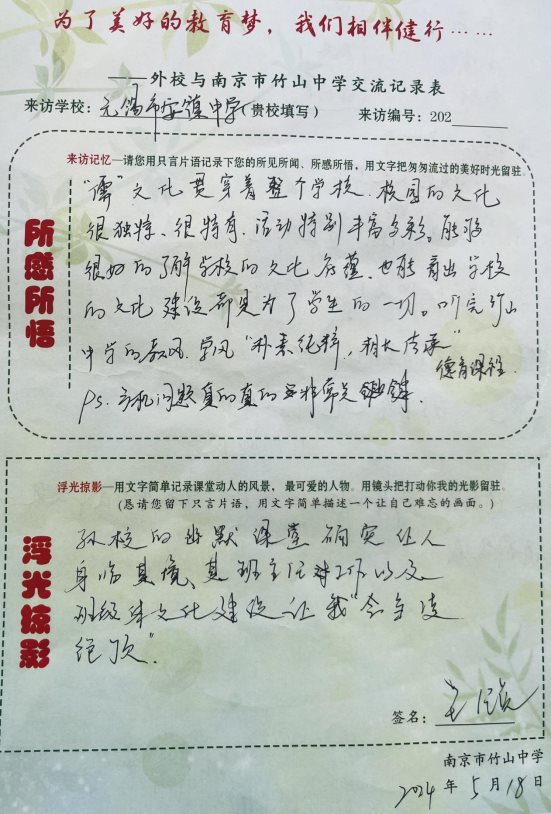 为了美好的教育梦，我们相伴健行……
——外校与南京市竹山中学交流记录表
来访学校：无锡市安镇中学（贵校填写） 来访编号：202
来访记忆—请您用只言片语记录下您的所见所闻、所感所悟，用文字把匆匆流过的美好时光留驻。
所感所悟
“儒”文化贯穿着整个学校、校园的文化
很独特、很特有、活动特别丰富多彩。能够
很好的了解学校的文化底蕴，也能看出学校
的文化建设都是为了学生的一切。听完竹山
中学的教风、学风“朴素纯粹，相长传承”
德育课程
ps.手机问题真的真的要非常
浮光掠影—用文字简单记录课堂动人的风景，最可爱的人物。用镜头把打动你我的光影留驻。
（恳请您留下只言片语，用文字简单描述一个让自己难忘的画面。）
浮光掠影
孙校的幽默课堂确实让人
身临其境、其班主任工作以及
班级体文化建设让我“会当凌
绝顶”。
签名：
南京市竹山中学
2024年5月18日